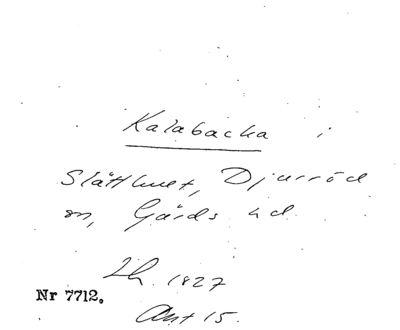 Kalabacka i
Slätthuet, Djurröd
sn, Gärds hd.
Lh. 1827
Nr 7712.
Akt 15.